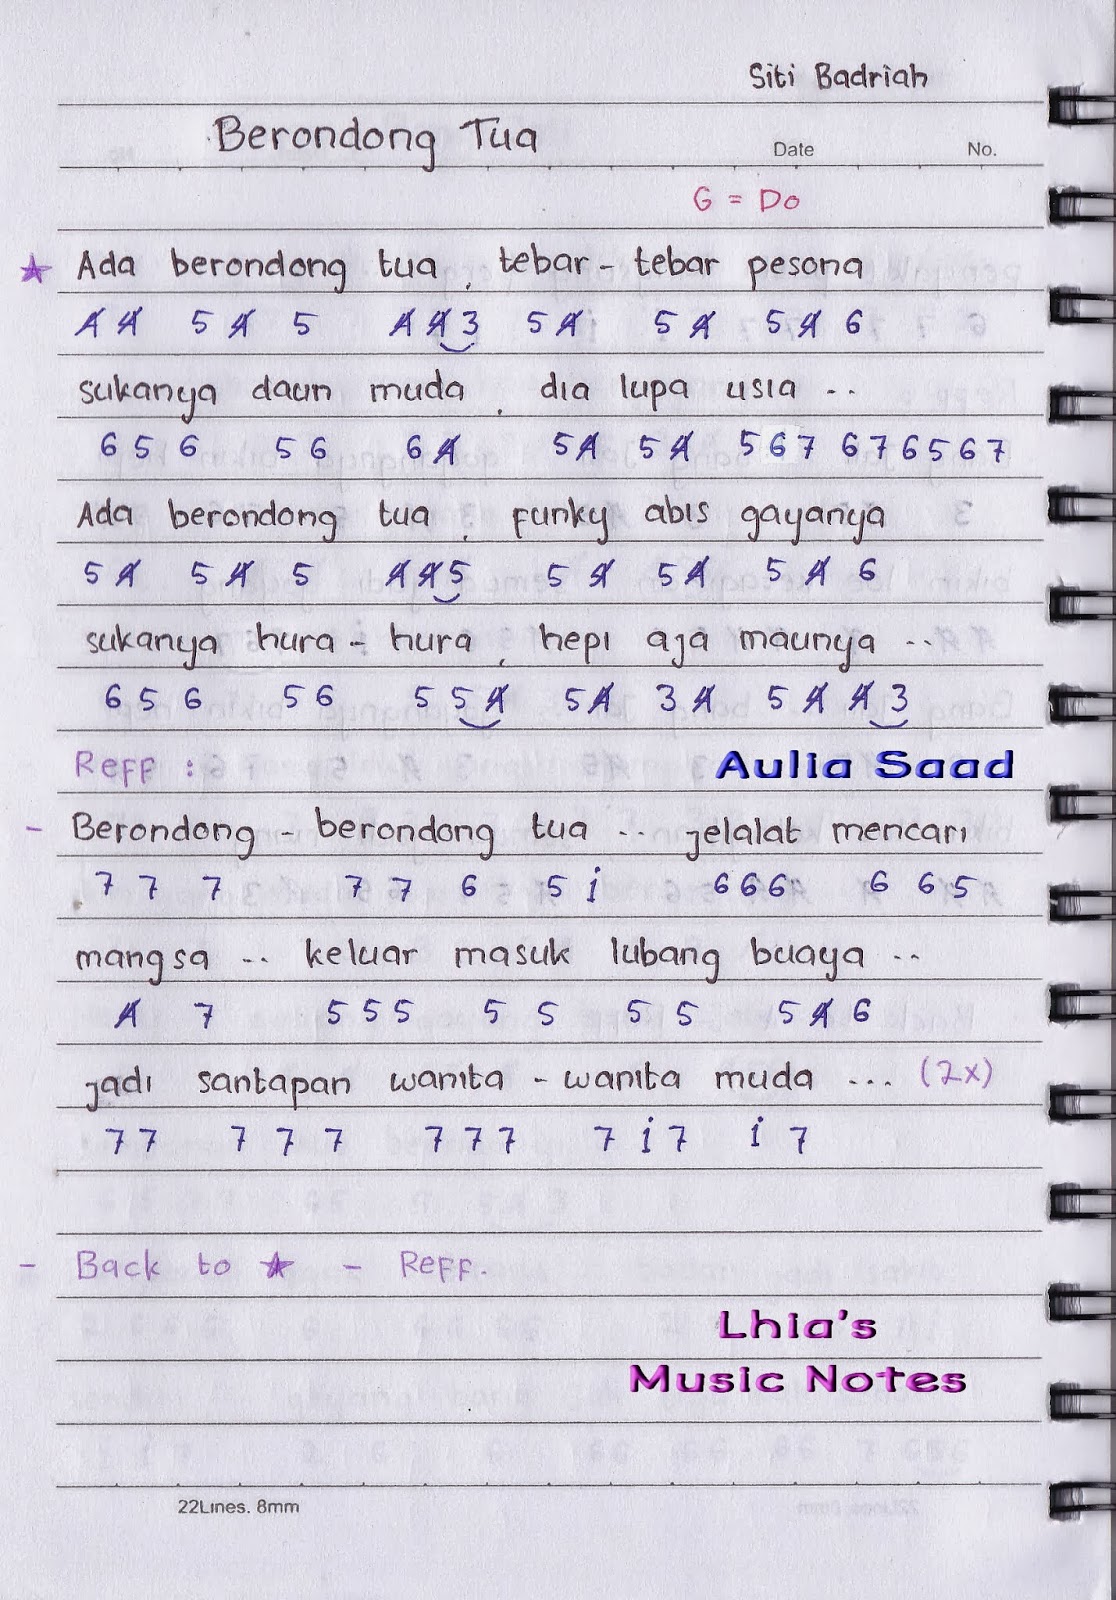 Siti Badriah
Berondong Tua
Date No.
G = Do
★ Ada berondong tua, tebar - tebar pesona
4̸ 4̸ 5 4̸ 5 4̸ 4̸ 3 5 4̸ 5 4̸ 5 4̸ 6
sukanya daun muda, dia lupa usia ..
6 5 6 5 6 6 4̸ 5 4̸ 5 4̸ 5 6 7 6 7 6 5 6 7
Ada berondong tua, funky abis gayanya
5 4̸ 5 4̸ 5 4̸ 4̸ 5 5 4̸ 5 4̸ 5 4̸ 6
sukanya hura - hura, hepi aja maunya ..
6 5 6 5 6 5 5 4̸ 5 4̸ 3 4̸ 5 4̸ 4̸ 3
Reff :
Aulia Saad
- Berondong - berondong tua .. jelalat mencari
7 7 7 7 7 6 5 i 6 6 6 6 6 5
mangsa .. keluar masuk lubang buaya ..
4̸ 7 5 5 5 5 5 5 5 5 4̸ 6
jadi santapan wanita - wanita muda ... (2x)
7 7 7 7 7 7 7 7 7 i 7 i 7
- Back to ★ - Reff.
Lhia's
Music Notes
22Lines. 8mm